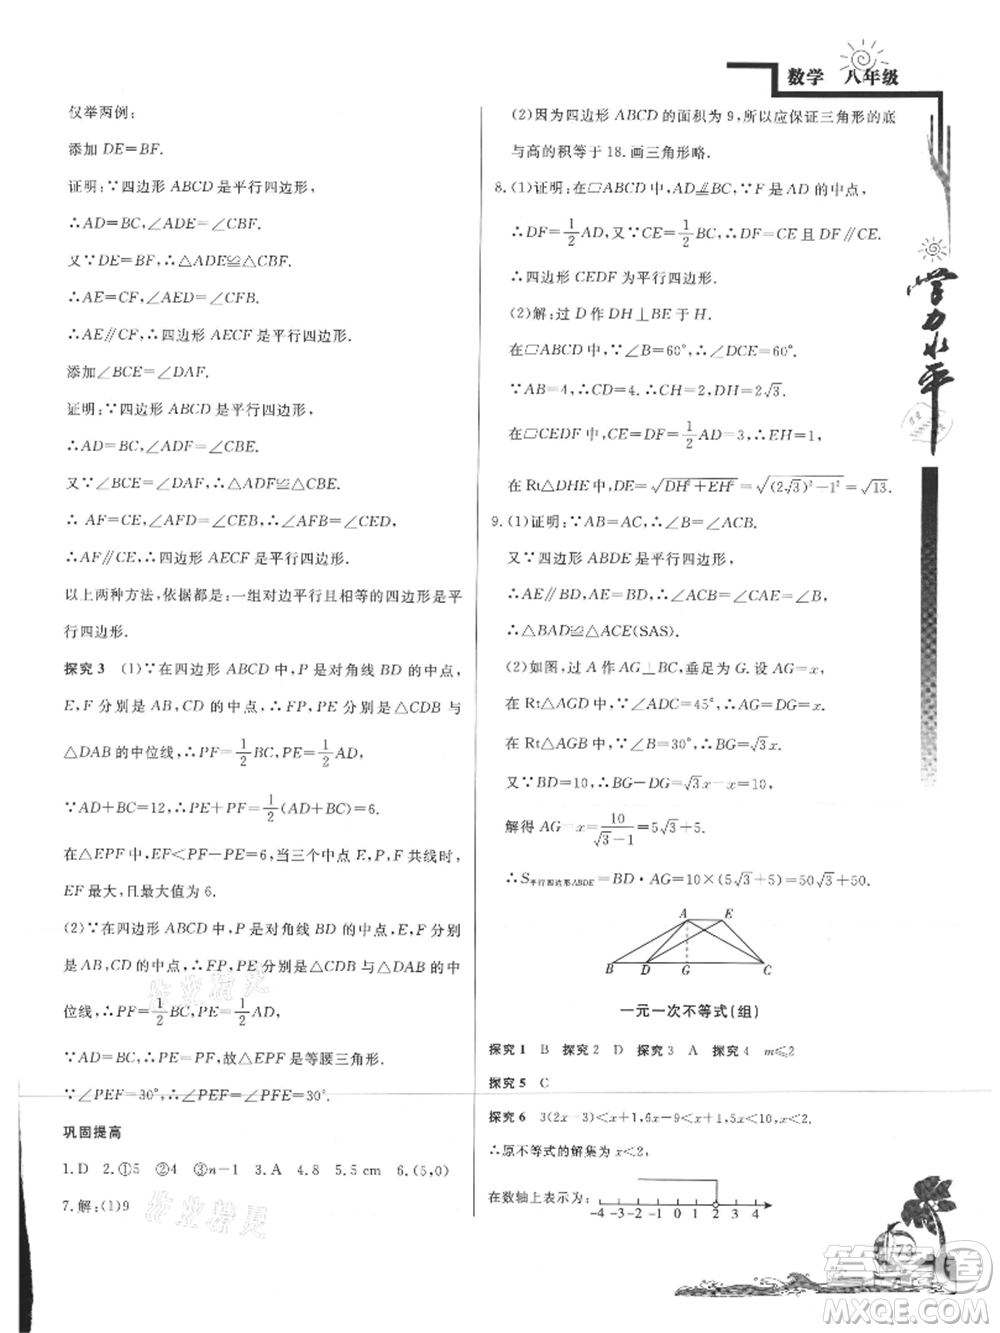 数学 八年级
仅举两例:
添加 DE=BF.
证明:∵四边形 ABCD 是平行四边形,
∴AD=BC,∠ADE=∠CBF.
又∵DE=BF,∴△ADE≌△CBF.
∴AE=CF,∠AED=∠CFB.
∴AE∥CF,∴四边形 AECF 是平行四边形.
添加∠BCE=∠DAF.
证明:∵四边形 ABCD 是平行四边形,
∴AD=BC,∠ADF=∠CBE.
又∵∠BCE=∠DAF,
∴△ADF≌△CBE.
∴ AF=CE,∠AFD=∠CEB,∴∠AFB=∠CED,
∴AF∥CE,∴四边形 AECF 是平行四边形.
以上两种方法,依据都是:一组对边平行且相等的四边形是平
行四边形.
探究 3 (1)∵在四边形 ABCD 中,P 是对角线 BD 的中点,
E,F 分别是 AB,CD 的中点,∴FP,PE 分别是△CDB 与
△DAB 的中位线,∴PF=1/2BC,PE=1/2AD,
∵AD+BC=12,∴PE+PF=1/2(AD+BC)=6.
在△EPF 中,EF<PF-PE=6,当三个中点 E,P,F 共线时,
EF 最大,且最大值为 6.
(2)∵在四边形 ABCD 中,P 是对角线 BD 的中点,E,F 分别
是 AB,CD 的中点,∴FP,PE 分别是△CDB 与△DAB 的中
位线,∴PF=1/2BC,PE=1/2AD,
∵AD=BC,∴PE=PF,故△EPF 是等腰三角形.
∵∠PEF=30°,∴∠PFE=∠PEF=30°.
巩固提高
1.D 2.①5 ②4 ③n-1 3.A 4.8 5.5 cm 6.(5,0)
7.解:(1)9
(2)因为四边形 ABCD 的面积为 9,所以应保证三角形的底
与高的积等于 18.画三角形略.
8.(1)证明:在▱ABCD 中,AD⫽BC,∵F 是 AD 的中点,
∴DF=1/2AD,又∵CE=1/2BC,∴DF=CE 且 DF∥CE.
∴四边形 CEDF 为平行四边形.
(2)解:过 D 作 DH⊥BE 于 H.
在▱ABCD 中,∵∠B=60°,∴∠DCE=60°.
∵AB=4,∴CD=4.∴CH=2,DH=2√3.
在▱CEDF 中,CE=DF=1/2AD=3,∴EH=1.
在 Rt△DHE 中,DE=√(DH²+EH²)=√((2√3)²-1²)=√13.
9.(1)证明:∵AB=AC,∴∠B=∠ACB.
又∵四边形 ABDE 是平行四边形,
∴AE∥BD,AE=BD,∴∠ACB=∠CAE=∠B,
∴△BAD≌△ACE(SAS).
(2)如图,过 A 作 AG⊥BC,垂足为 G.设 AG=x,
在 Rt△AGD 中,∵∠ADC=45°,∴AG=DG=x.
在 Rt△AGB 中,∵∠B=30°,∴BG=√3x.
又∵BD=10.∴BG-DG=√3x-x=10,
解得 AG=x=10/(√3-1)=5√3+5.
∴S平行四边形ABDE=BD·AG=10×(5√3+5)=50√3+50.
A E
B D G C
一元一次不等式(组)
探究 1 B 探究 2 D 探究 3 A 探究 4 m≤2
探究 5 C
探究 6 3(2x-3)<x+1,6x-9<x+1,5x<10,x<2.
∴原不等式的解集为 x<2.
在数轴上表示为:
-4 -3 -2 -1 0 1 2 3 4
学力水平
73
作业精灵
作业精灵
答案圈
MXQE.COM